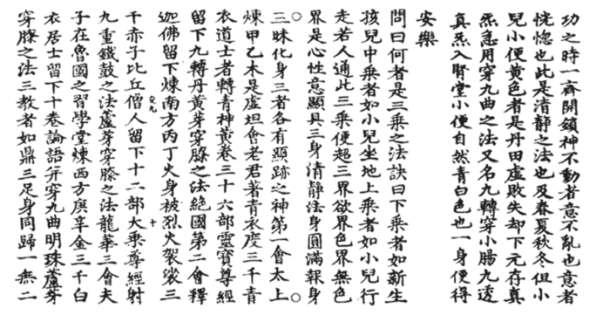 功之時一齊開鎖神不動者意不亂也意者
恍惚也此是清靜之法也及春夏秋冬但小
兒小便黃色者是丹田虛敗失却下元存真
炁急用穿九曲之法又名九轉穿小腸九透
真炁入腎堂小便自然青白色也一身便得
安樂
問曰何者是三乘之法訣曰下乘者如新生
孩兒中乘者如小兒坐地上乘者如小兒行
走若人通此三乘便超三界欲界色界無色
界是心性意顯具三身清靜法身圓滿報身
三昧化身三者各有顯跡之神第一會太上
煉甲乙木是虛坦會老君著青衣度三千青
衣道士者轉青神黃卷三十六部靈寶尊經
留下九轉丹黃芽穿膝之法絶國第二會釋
迦佛留下煉南方丙丁火身被烈火袈裟三
千赤子比丘僧人留下十二部大乘尊經射
九重鐵鼓之法蘆芽穿膝之法龍華三會夫
子在魯國之習學堂煉西方庚辛金三千白
衣居士留下十卷論語并穿九曲明珠蘆芽
穿膝之法三教者如鼎三足身同歸一無二